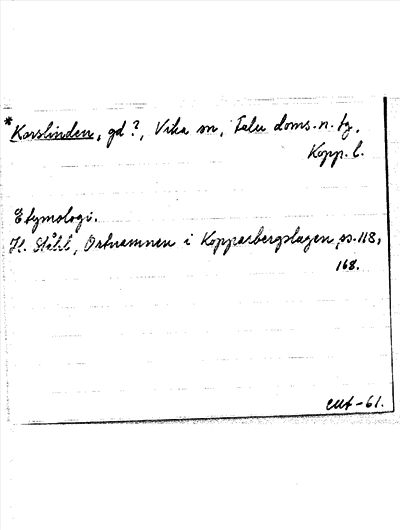 *Karslinden, gd?, Vika sn, Falu doms.n. tg,
Kopp. l.
Etymologi.
H. Ståhl, Ortnamnen i Kopparbergslagen, ss. 118,
168.
-61.